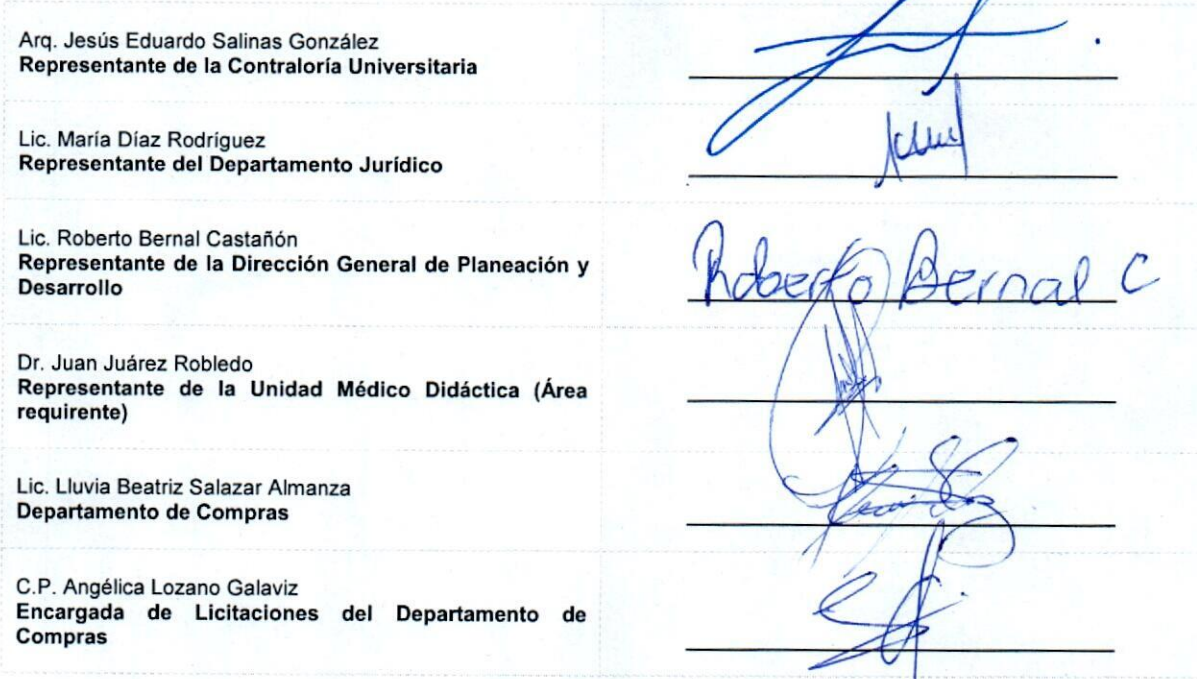 Arq. Jesús Eduardo Salinas González
Representante de la Contraloría Universitaria
Lic. María Díaz Rodríguez
Representante del Departamento Jurídico
Lic. Roberto Bernal Castañón
Representante de la Dirección General de Planeación y
Desarrollo
Roberto Bernal C
Dr. Juan Juárez Robledo
Representante de la Unidad Médico Didáctica (Área
requirente)
Lic. Lluvia Beatriz Salazar Almanza
Departamento de Compras
C.P. Angélica Lozano Galaviz
Encargada de Licitaciones del Departamento de
Compras